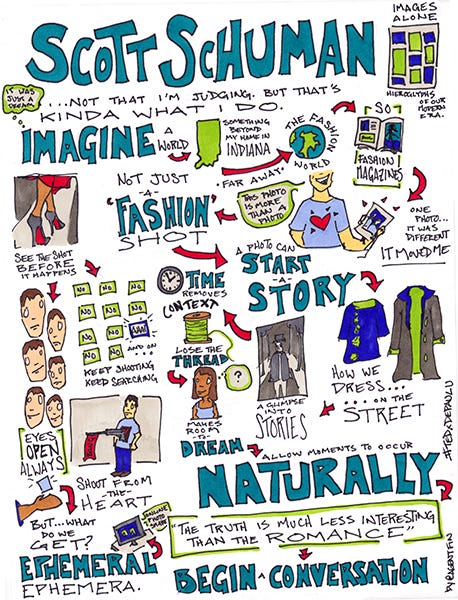 SCOTT SCHUMAN
IMAGES
ALONE
HIEROGLYPHS
OF OUR
MODERN
ERA.
IT WAS
JUST A
DREAM
...NOT THAT I'M JUDGING. BUT THAT'S
KINDA WHAT I DO.
IMAGINE A
WORLD
SOMETHING
BEYOND
MY HOME IN
INDIANA
THE FASHION
WORLD
FAR AWAY.
SO
FASHION
MAGAZINES
ONE
PHOTO...
IT WAS
DIFFERENT
IT MOVED ME
THIS PHOTO
IS MORE
THAN A
PHOTO
NOT JUST
-A-
"FASHION"
SHOT
SEE THE SHOT
BEFORE
IT HAPPENS
A PHOTO CAN
START
-A-
STORY
TIME
REMOVES
CONTEXT
LOSE THE
THREAD
?
MAKES
ROOM
-TO-
DREAM
NO NO NO
NO NO NO
NO NO NO
NO NO
AND ON...
KEEP SHOOTING
KEEP SEARCHING
A GLIMPSE
INTO
STORIES
HOW WE
DRESS...
...ON THE
STREET
EYES
OPEN
ALWAYS
SHOOT FROM
-THE-
HEART
ALLOW MOMENTS TO OCCUR
NATURALLY
BUT...WHAT
DO WE
GET?
ONLINE
PHOTO
SHARE
EPHEMERAL
EPHEMERA.
"THE TRUTH IS MUCH LESS INTERESTING
THAN THE ROMANCE."
BEGIN A CONVERSATION
#TEDXDEPAULU